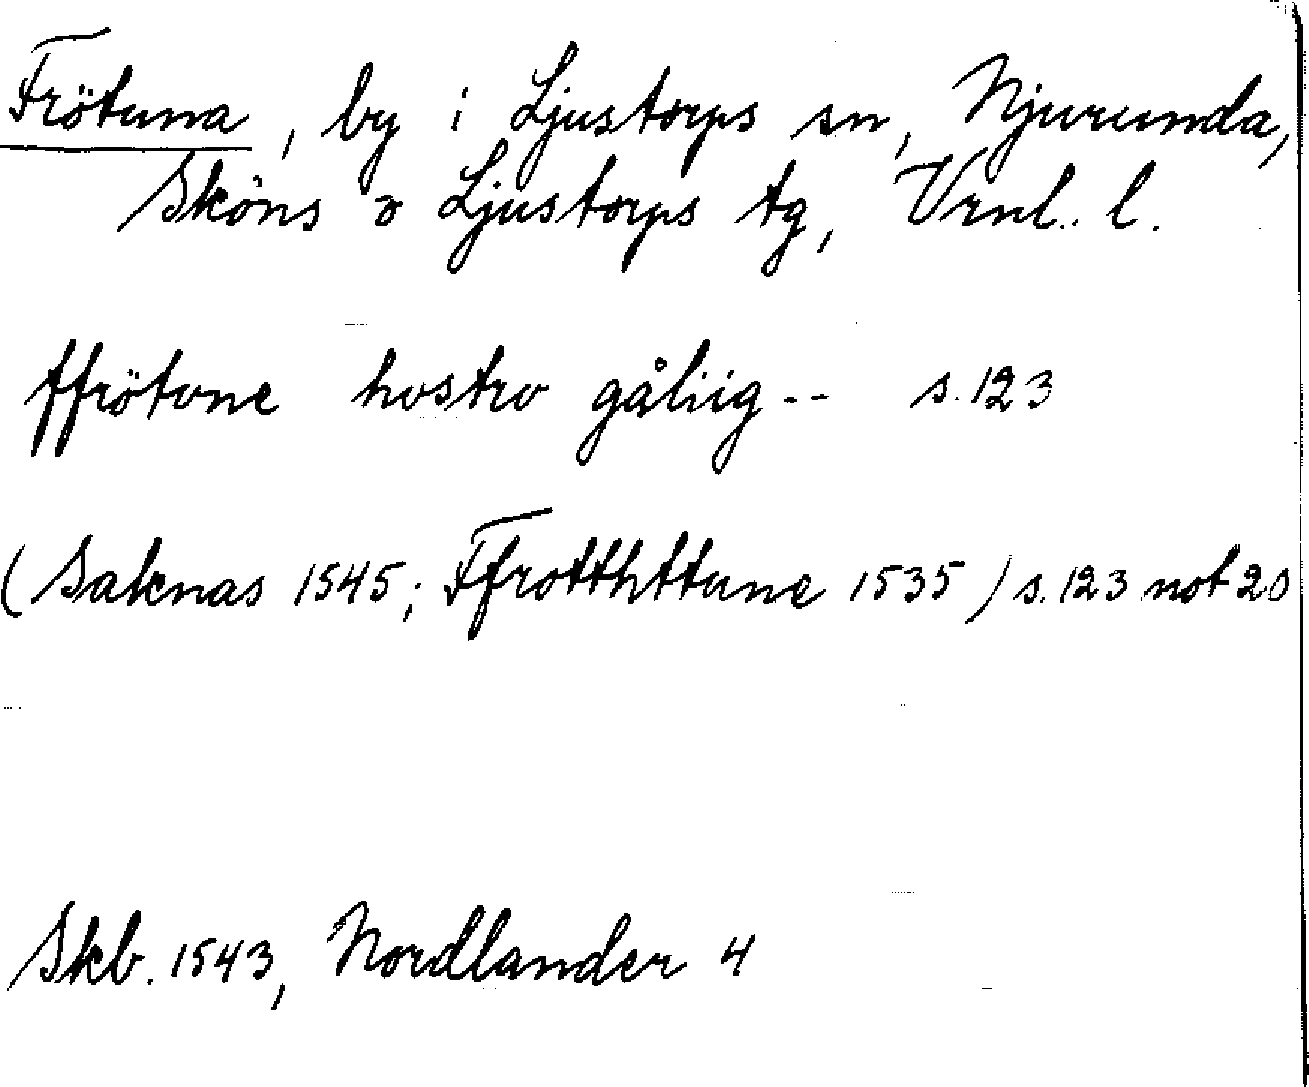 Frötuna, by i Ljustorps sn, Njurunda,
Sköns o Ljustorps tg, Vrnl. l.
ffrötune hustro gåliig -- s. 123
(Saknas 1545; Ffrotthttune 1535) s. 123 not 20
Skb. 1543, Nordlander 4